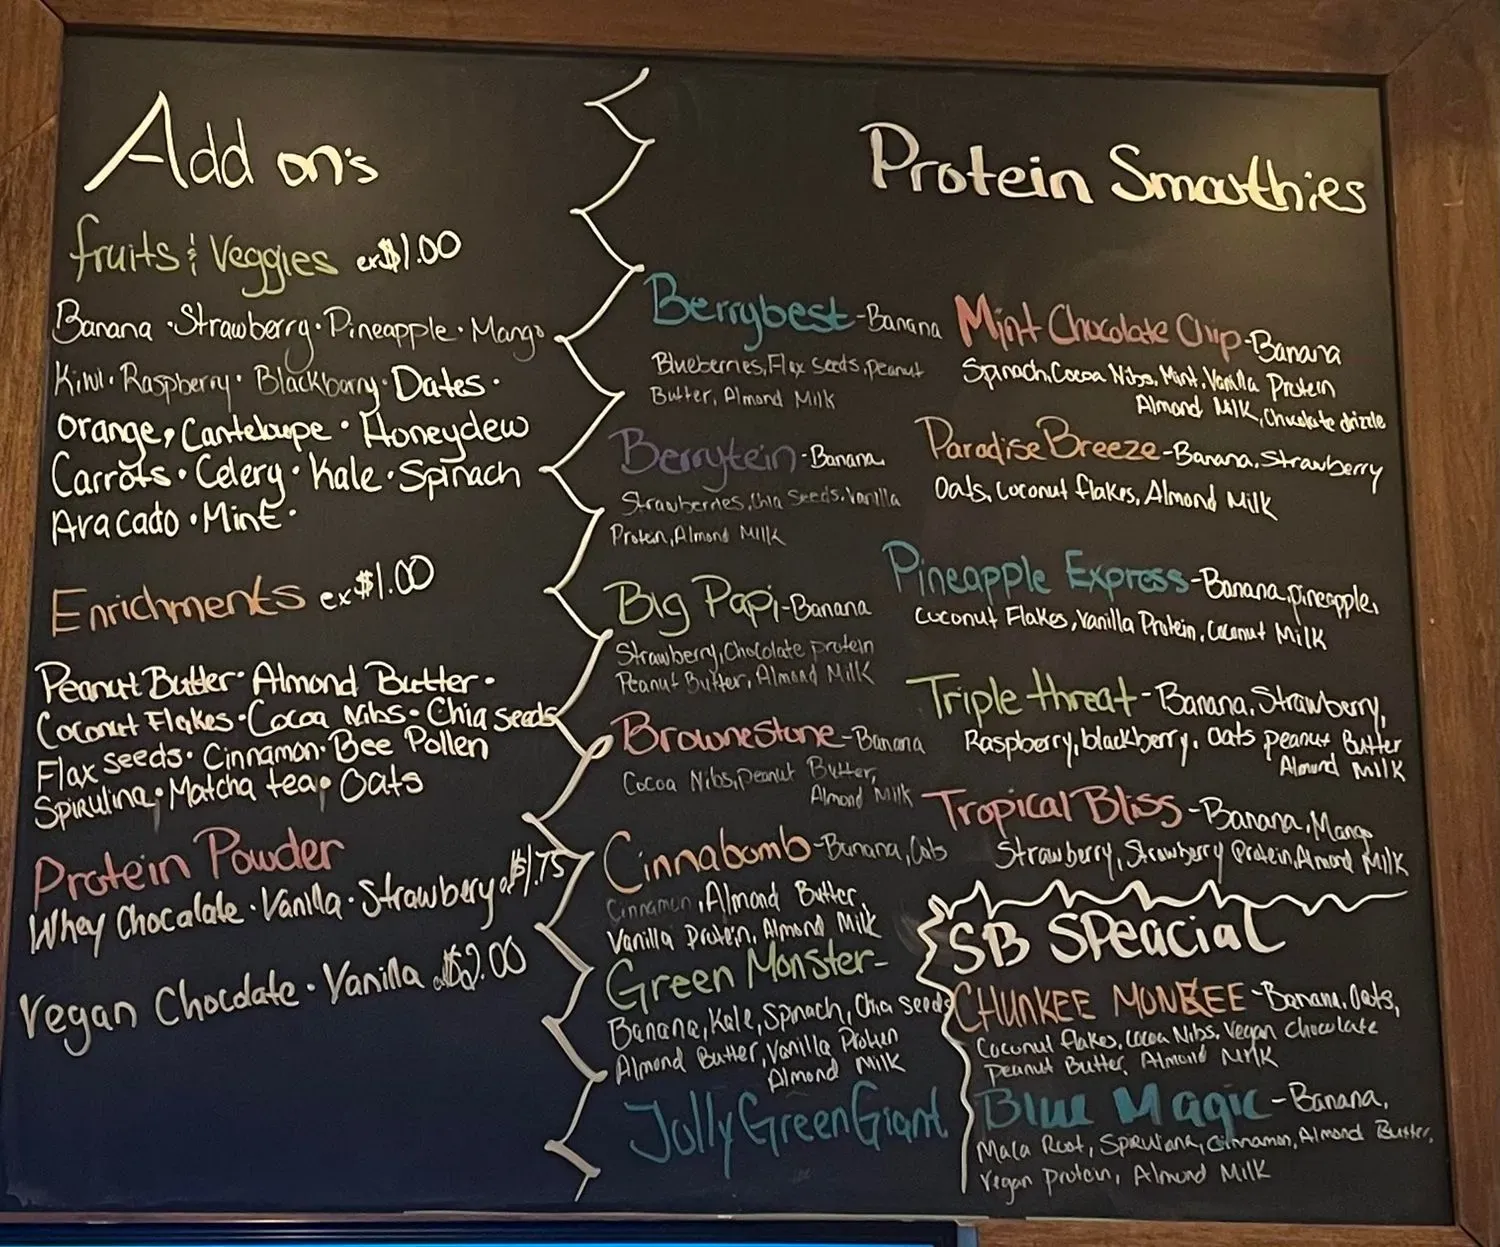 Add on's
fruits & Veggies ex $1.00
Banana · Strawberry · Pineapple · Mango
Kiwi · Raspberry · Blackbarry · Dates ·
Orange, Canteloupe · Honeydew
Carrots · Celery · Kale · Spinach
Avacado · Mint ·
Enrichments ex $1.00
Peanut Butter · Almond Butter ·
Coconut Flakes · Cocoa Nibs · Chia seeds
Flax seeds · Cinnamon · Bee Pollen
Spirulina · Matcha tea · Oats
Protein Powder
Whey Chocalate · Vanilla · Strawbery $1.75
Vegan Chocolate · Vanilla $2.00
Protein Smoothies
Berrybest - Banana
Blueberries, Flax seeds, peanut
Butter, Almond Milk
Berrytein - Banana
Strawberries, Chia Seeds, Vanilla
Protein, Almond Milk
Big Papi - Banana
Strawberry, Chocolate protein
Peanut Butter, Almond Milk
BrowneStone - Banana
Cocoa Nibs, peanut Butter,
Almond Milk
Cinnabomb - Banana, Oats
Cinnamon, Almond Butter,
Vanilla Protein, Almond Milk
Green Monster -
Banana, Kale, Spinach, Chia seeds
Almond Butter, Vanilla Protien
Almond Milk
Jolly Green Giant
Mint Chocolate Chip - Banana
Spinach, Cocoa Nibs, Mint, Vanilla Protein
Almond Milk, Chocolate drizzle
Paradise Breeze - Banana, Strawberry
Oats, Coconut flakes, Almond Milk
Pineapple Express - Banana, pineapple,
Coconut Flakes, Vanilla Protein, Coconut Milk
Triple threat - Banana, Strawberry,
Raspberry, blackberry, Oats peanut Butter
Almond Milk
Tropical Bliss - Banana, Mango
Strawberry, Strawberry Protein, Almond Milk
SB SPEACIAL
CHUNKEE MUNKEE - Banana, Oats,
Coconut flakes, Cocoa Nibs, Vegan Chocolate
Peanut Butter, Almond Milk
Blue Magic - Banana,
Maca Root, Spirulina, Cinnamon, Almond Butter,
Vegan Protein, Almond Milk